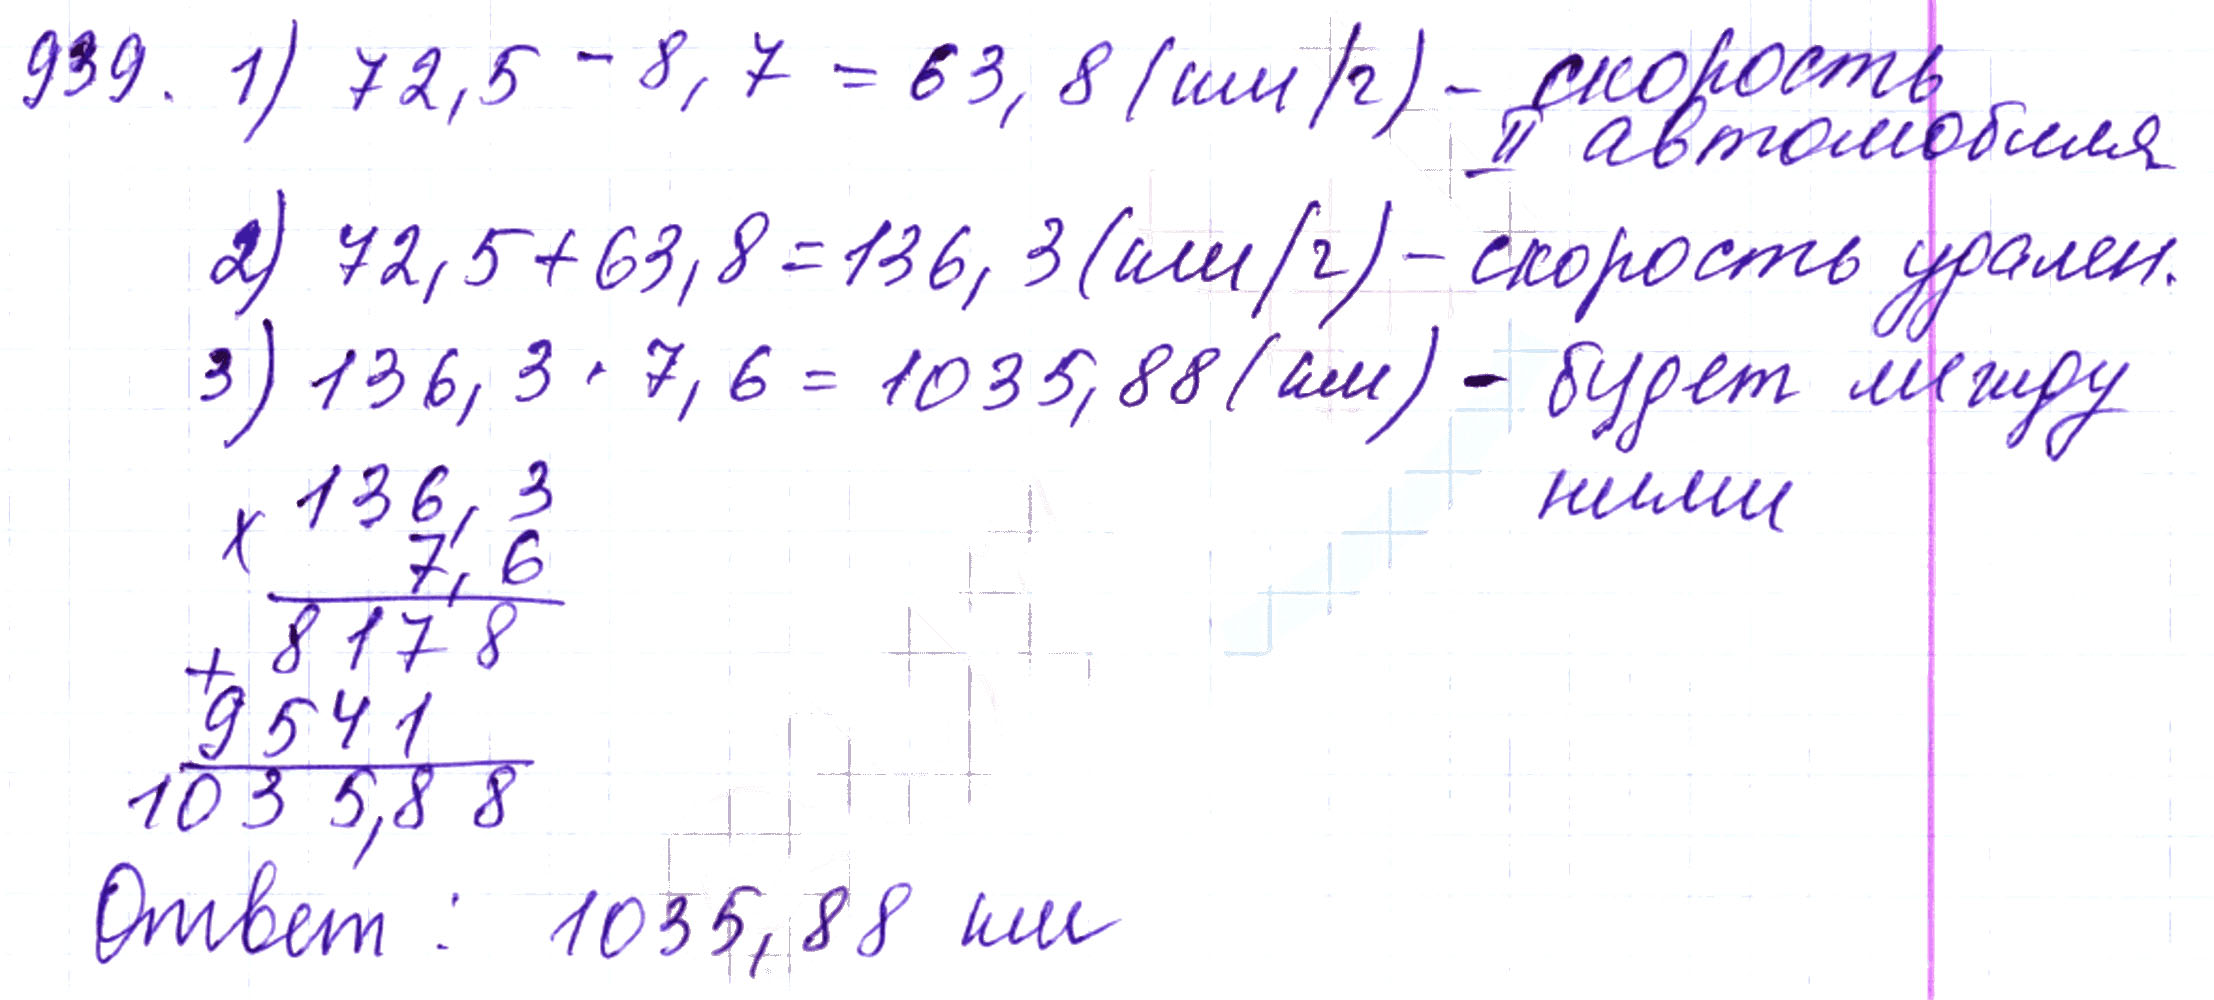 939. 1) 72,5 - 8,7 = 63,8 (км/г) - скорость
II автомобиля
2) 72,5 + 63,8 = 136,3 (км/г) - скорость удален.
3) 136,3 · 7,6 = 1035,88 (км) - будет между
ними
x 136,3
7,6
8178
+ 9541
1035,88
Ответ : 1035,88 км